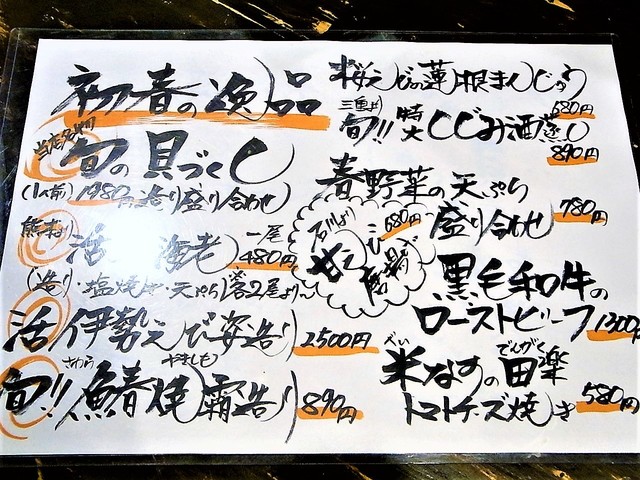 初春の逸品
当店名物
旬の貝づくし
(1人前) 1980円 造り盛り合わせ
熊本より
活 海老 一尾 480円
(造り・塩焼き・天ぷら 各2尾より〜
活 伊勢えび姿造り 2500円
さわら やきしも
旬!! 鰆焼霜造り 890円
桜えびの蓮根まんじゅう 680円
三重より
旬!! 特大 しじみ酒蒸し 890円
春野菜の天ぷら
盛り合わせ 780円
石川より
甘えび唐揚 680円
黒毛和牛の
ローストビーフ 1300円
べい でんがく
米なすの田楽
トマトチーズ焼き 580円